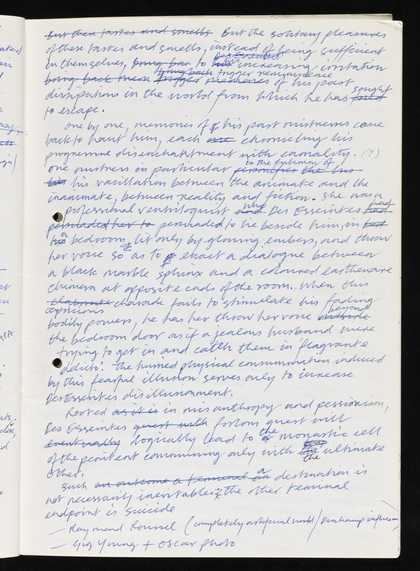 But then tastes and smells But the solitary pleasures
of these tastes and smells, instead of being sufficient
in themselves, bring back to Des Esseintes increasing irritation
bring back them trigger memories bring back trigger reminiscence of his past
dissipations in the world from which he has sought
to escape.
One by one, memories of his past mistresses come
back to haunt him, each chronicling his
progressive disenchantment with carnality. (?)
One mistress in particular personifies the to the epitome of
his vacillation between the animate and the
inanimate, between reality and fiction. She was a
professional ventriloquist who Des Esseintes had
persuaded her to persuaded to lie beside him, in
a bedroom lit only by glowing embers, and throw
her voice so as to enact a dialogue between
a black marble sphinx and a coloured earthenware
chimera at opposite ends of the room. When this
elaborate charade fails to stimulate his fading
capricious
bodily powers, he has her throw her voice outside beyond
the bedroom door as if a jealous husband were
trying to get in and catch them in flagrante
delicti. The hurried physical consummation induced
by this fearful illusion serves only to increase
Des Esseintes disillusionment.
Rooted as it is in misanthropy and pessimism,
Des Esseintes quest with forlorn quest will
eventually logically lead to the monastic cell
of the penitent communing only with the ultimate
other.
Such an outcome a terminal a destination is
not necessarily inevitable; the other terminal
endpoint is suicide
– Raymond Roussel (completely artificial world / Duchamp influence)
– Gig Young + Oscar photo